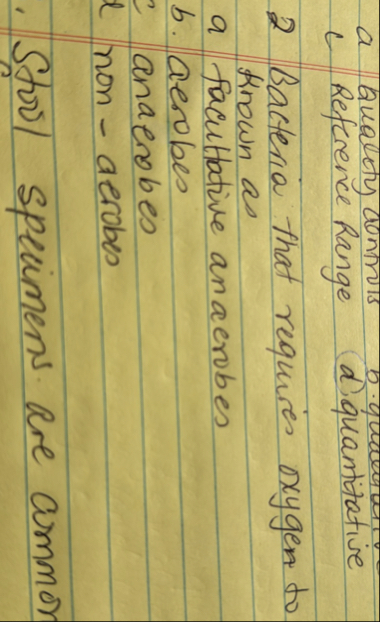 a quality controls b. qualitative
c Reference Range d) quantitative
2 Bacteria that requires oxygen to
known as
a facultative anaerobes
b. aerobes
c anaerobes
d non-aerobes
Stool specimens are common